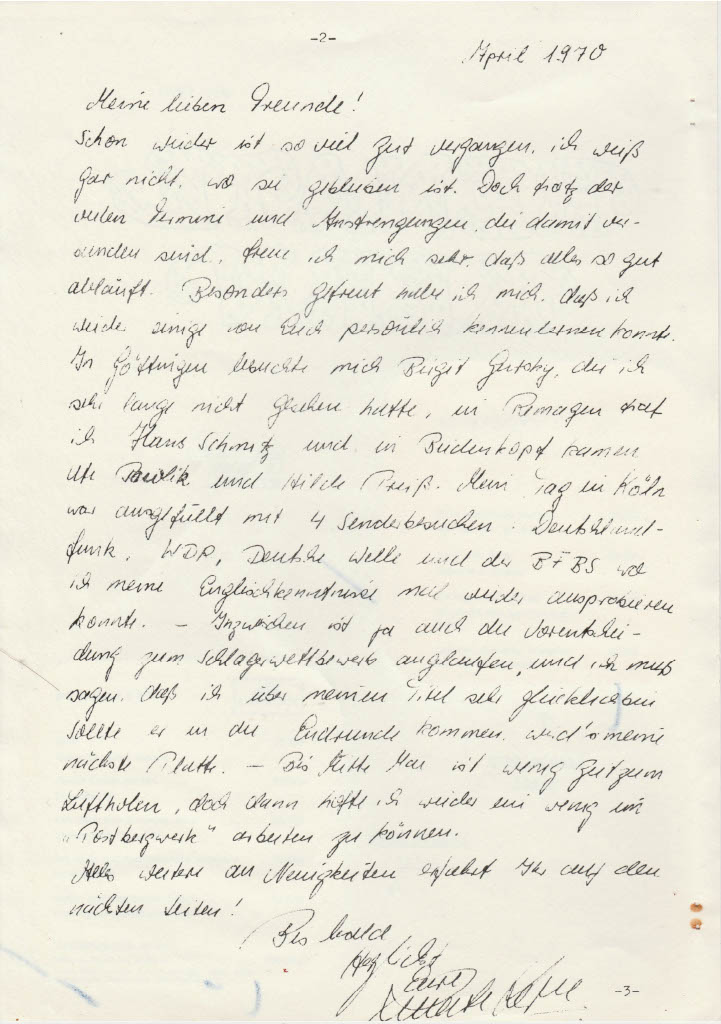 -2-
April 1970
Meine lieben Freunde!
Schon wieder ist so viel Zeit vergangen, ich weiß
gar nicht, wo sie geblieben ist. Doch trotz der
vielen Termine und Anstrengungen, die damit ver-
bunden sind, freue ich mich sehr, daß alles so gut
abläuft. Besonders gefreut habe ich mich, daß ich
wieder einige von Euch persönlich kennenlernen konnte.
In Göttingen besuchte mich Birgit, die ich
sehr lange nicht gesehen hatte, in Remagen traf
ich Hans Schmitz und in Biedenkopf kamen
Ute Pawlik und Hilde Preiß. Mein Tag in Köln
war ausgefüllt mit 4 Senderbesuchen. Deutschland-
funk, WDR, Deutsche Welle und der BFBS wo
ich meine Englischkenntnisse mal wieder ausprobieren
konnte. - Inzwischen ist ja auch die Vorentschei-
dung zum Schlagerwettbewerb angelaufen, und ich muß
sagen, daß ich über meinen Titel sehr glücklich bin
sollte er in die Endrunde kommen, wird's meine
nächste Platte. - Bis Mitte Mai ist wenig Zeit zum
Luftholen, doch dann hoffe ich wieder ein wenig im
"Postbergwerk" arbeiten zu können.
Alles weitere an Neuigkeiten erfahrt Ihr auf den
nächsten Seiten!
Bis bald
Herzlichst
Eure
-3-